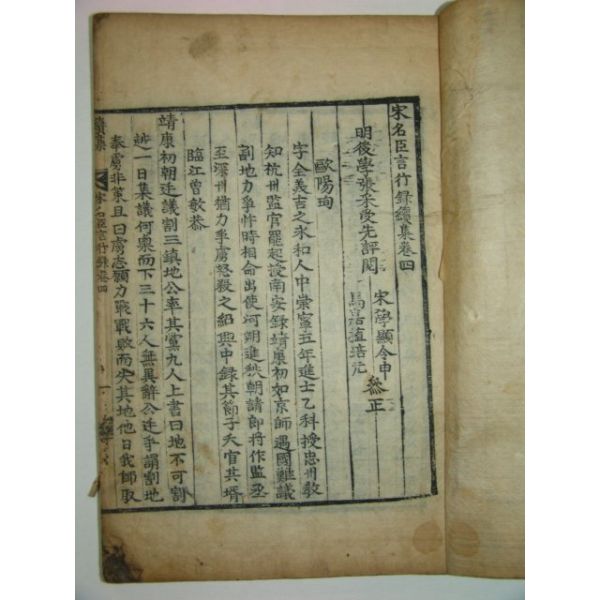 宋名臣言行錄續集卷四
明後學張采受先評閱
宋學顯令申
馬嘉植培元
叅正
歐陽珣
字全美吉之永和人中崇寧五年進士乙科授忠州教
知杭州監官罷起授南安錄靖康初如京師遇國難議
割地力爭忤時相命出使河朔進秩朝請郎將作監丞
至深州猶力爭虜怒殺之紹興中録其節子天官其壻
臨江曾敏恭
靖康初朝廷議割三鎮地公率其黨九人上書曰地不可割
越一日集議何㮚而下三十六人無異辭公廷爭謂割地
奉虜非策且曰虜志願力戰戰敗而失其地他日我師取
續集
宋名臣言行錄卷四